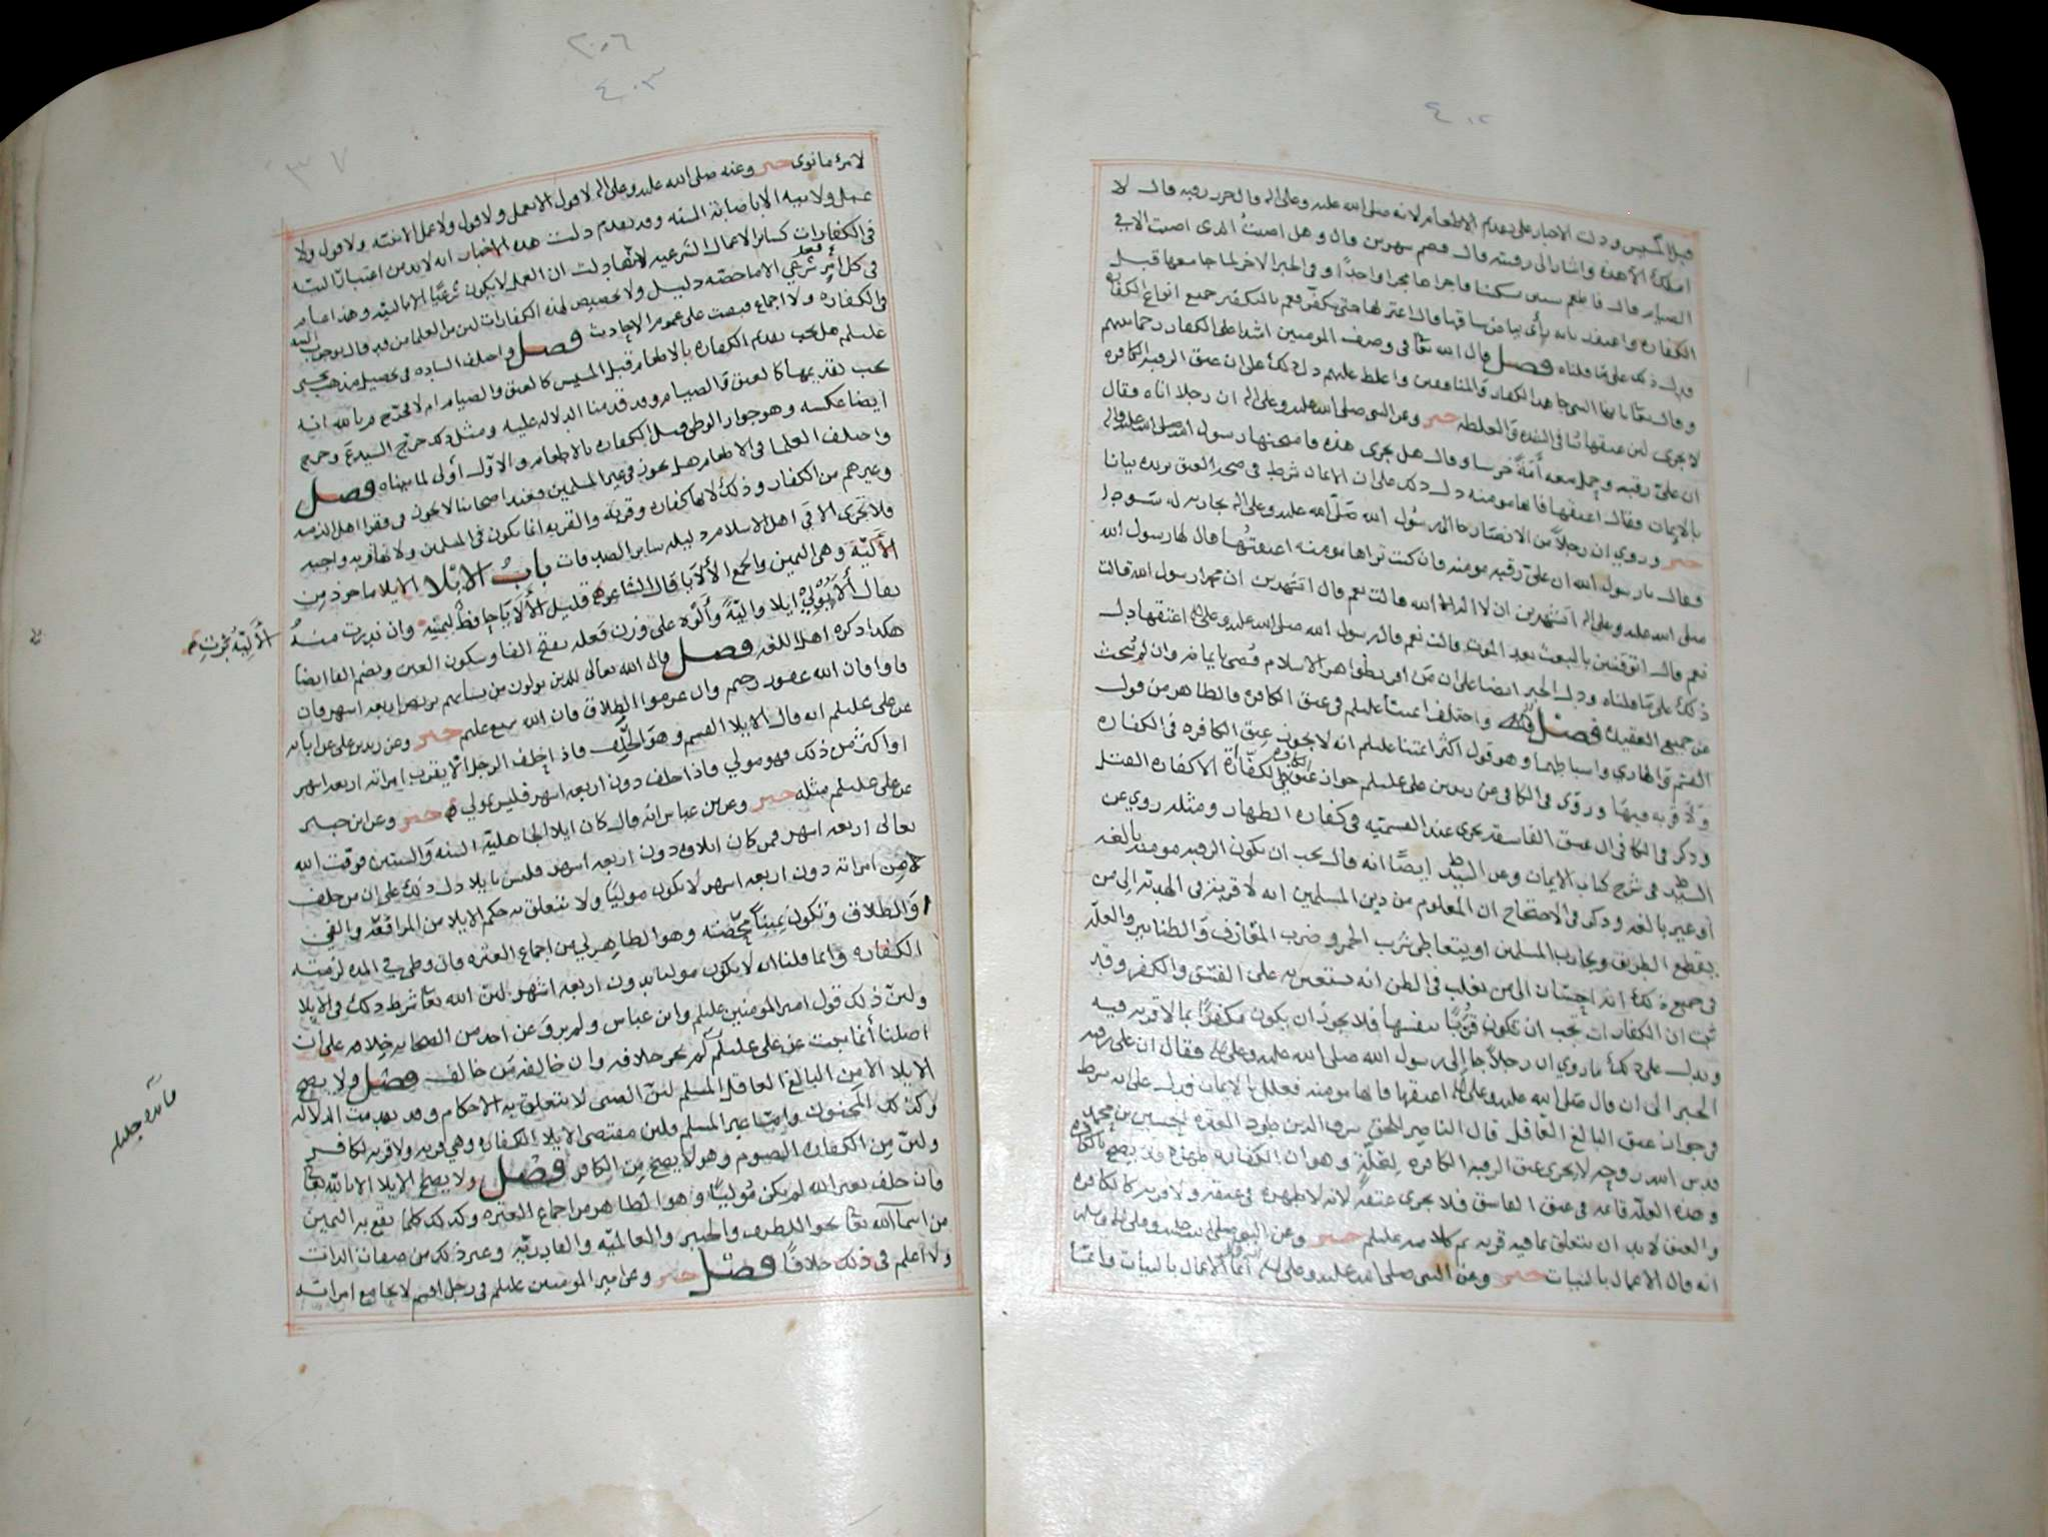 ٤٠٢
قبل المسيس ودلت الاخبار على تقديم الاطعام لانه صلى الله عليه وعلى اله قال حرر رقبه قال لا
املك الا هذه واشار الى رقبته قال فصم شهرين قال وهل اصبتُ الذي اصبت الا في
الصيام قال فاطعم ستين مسكينا فاجراها مجرا واحدًا وفي الخبر الاخر لما جامعها قبل
الكفاره واعتذر بانه رأى بياض ساقها قال اعتزلها حتى تكفّر فعم بالتكفير جميع انواع الكفاره
فدل ذلك على ما قلناه فصل قال الله تعا في وصف المومنين اشدا على الكفار رحما بينهم
وقال تعا يا ايها النبي جاهد الكفار والمنافقين واغلظ عليهم دل ذلك على ان عتق الرقبه الكافره
لا يجزي لان عتقها ينافي الشده والغلظه خبر وعن النبي صلى الله عليه وعلى اله ان رجلا اتاه وقال
ان عليّ رقبه وحمل معه أمَةً خرسا وقال هل يجزي هذه فامتحنها رسول الله صلى الله عليه واله
بالايمان فقال اعتقها فانها مومنه دل ذلك على ان الايمان شرط في صحه العتق يزيده بيانا
خبر وروي ان رجلاً من الانصار جا الى رسول الله صلّى الله عليه وعلى اله بجاريه له سودا
وقال يا رسول الله ان عليّ رقبه مومنه فان كنت تراها مومنه اعتقتُها قال لها رسول الله
صلى الله عليه وعلى اله اتشهدين ان لا اله الا الله قالت نعم قال اتشهدين ان محمدا رسول الله قالت
نعم قال اتوقنين بالبعث بعد الموت قالت نعم قال رسول الله صلى الله عليه وعلى اله اعتقها دل
ذلك على ما قلناه ودل الخبر ايضا على ان من اقر بظواهر الاسلام قُضي بايمانه وان لم يُبحث
عن جميع العقيده فصل واختلف ائمتنا عليلم في عتق الكافره فالظاهر من قول
القسم والهادي واسباطهما وهو قول اكثر ائمتنا عليلم انه لا يجوز عتق الكافره في الكفاره
ولا قربه فيها وروى في الكافي عن زيد بن علي عليلم جواز عتق الكافره في الكفّارة الا كفاره القتل
وذكر في الكافي ان عتق الفاسقه يجزي عند القسميه في كفاره الظهار ومثله روي عن
السيّد في شرح كتاب الايمان وعن السيّد ايضًا انه قال يجب ان يكون الرقبه مومنه بالغه
او غير بالغه وذكر في الاحتجاج ان المعلوم من دين المسلمين انه لا قربة في الهديه الى من
يقطع الطريق ويحارب المسلمين او يتعاطى شرب الخمر وضرب المعازف والطنابير والعلّه
في جميع ذلك انه احسان الى من يغلب في الظن انه يستعين به على الفسق والكفر وقد
ثبت ان الكفارات يجب ان تكون قربًا بنفسها فلا يجوز ان يكون مكفرًا بما لا قربه فيه
ويدل على ذلك ما روي ان رجلاً جا الى رسول الله صلى الله عليه وعلى اله فقال ان علي رقبه
الخبر الى ان قال صلى الله عليه وعلى اله اعتقها فانها مومنه فعلل بالايمان فدل على انه شرط
في جواز عتق البالغ العاقل قال الناصر للحق شرف الدين طود العتره الحسين بن محمد
قدس الله روحه لا يجزي عتق الرقبه الكافره لِعلّةٍ وهو ان الكفاره طهرة فلا يصح بالكافره
وهذه العلّه قايمه في عتق الفاسق فلا يجزي عتقه لانه لا طهره في عتقه ولا قربه كالكافره
والعتق لا بد ان يتعلق بما فيه قربه تم كلامه عليلم خبر وعن النبي صلى الله عليه وعلى اله وسلم
انه قال الاعمال بالنيات خبر وعن النبي صلى الله عليه وعلى اله انه قال انما الاعمال بالنيات وانما
٢٠٦
٤٠٣
٣٧
لامرئ ما نوى خبر وعنه صلى الله عليه وعلى اله لا قول الا بعمل ولا قول ولا عمل الا بنيّه ولا قول ولا
عمل ولا نيه الا باصابة السنه وقد تقدم دلت هذه الاخبار انه لا بد من اعتبار النيه
في الكفارات كسائر الاعمال الشرعيه لانها دلت ان العمل لا يكون شرعيًا الا بالنيه وهذا عام
في كل امر فعل شرعي الا ما خصّه دليل ولا تخصيص لهذه الكفارات لان من العلما من قد قال بوجوب النيه
في الكفاره ولا اجماع فبقيت على عموم الاحاديث فصل واختلف الساده في تحصيل مذهب يحيى
عليلم هل يجب تقديم الكفاره بالاطعام قبل المسيس كالعتق والصيام ام لا فخرّج م بالله انه
يجب تقديمها كالعتق والصيام وقد قدمنا الدلاله عليه ومثل ذلك خرّج السيد ع وخرج
ايضا عكسه وهو جواز الوطي قبل الكفاره بالاطعام والاوّل أولى لما بيناه فصل
واختلف العلما في الاطعام هل يجوز في غير المسلمين فعند اصحابنا لا يجوز في فقرا اهل الذمه
وغيرهم من الكفار وذلك لانها كفاره وقربه والقربه انما تكون في المسلمين ولانها قربه واجبه
فلا تجزي الا في اهل الاسلام دليله سائر الصدقات باب الايلا الايلا ماخوذ من
الأليّة وهي اليمين والجمع الألايا قال الشاعر قليل الألايا حافظٌ ليمينه وان ندرت منه
الأليّة بُرّتِ
يقال ألا يُؤلي ايلا واليّةً وألوه على وزن فعله بفتح الفا وسكون العين وبضم الفا ايضا
هكذا ذكره اهل اللغه فصل قال الله تعالى للذين يولون من نسائهم تربص اربعه اشهر فان
فاوا فان الله غفور رحيم وان عزموا الطلاق فان الله سميع عليم خبر وعن زيد بن علي عن ابائه
عن علي عليلم انه قال الايلا القسم وهو الحلِف فاذا حلف الرجل لا يقرب امراته اربعه اشهر
او اكثر من ذلك فهو مولي فاذا حلف دون اربعه اشهر فليس بمولي خبر وعن ابن جبير
عن علي عليلم مثله خبر وعن بن عباس انه قال كان ايلا الجاهلية السنه والسنتين فوقت الله
تعالى اربعه اشهر فمن كان ايلاوه دون اربعه اشهر فليس بايلا دل ذلك على ان من حلف
من امراته دون اربعه اشهر لا يكون موليًا ولا يتعلق به حكم الايلا من المرافعه والفي
والطلاق وتكون يمينًا محضه وهو الظاهر لي من اجماع العتره فان وطي في المده لزمته
الكفاره وانما قلنا انه لا يكون موليا بدون اربعه اشهر لان الله تعا شرط ذلك في الايلا
ولان ذلك قول امير المومنين عليلم وابن عباس ولم يرو عن احد من الصحابه خلافه على ان
اصلنا أنما ثبت عن علي عليلم لم نجز خلافه وان خالفه من خالف فصل ولا يصح
الايلا الا من البالغ العاقل المسلم لان الصبي لا يتعلق به الاحكام وقد تقدمت الدلاله
وكذلك المجنون وامّا غير المسلم فلان مقتضى الايلا الكفاره وهي قربه ولا قربه لكافر
ولان من الكفاره الصوم وهو لا يصح من الكافر فصل ولا يصح الايلا الا بالله تعا
فان حلف بغير الله لم يكن مُوليًا وهو الظاهر من اجماع العتره وكذلك كلما تقع به اليمين
من اسما الله تعا نحو اللطيف والخبير والعالميه والقادريه وغير ذلك من صفات الذات
ولا اعلم في ذلك خلافًا فصل خبر وعن امير المومنين عليلم في رجل اقسم لا يجامع امراته
فائده جليله